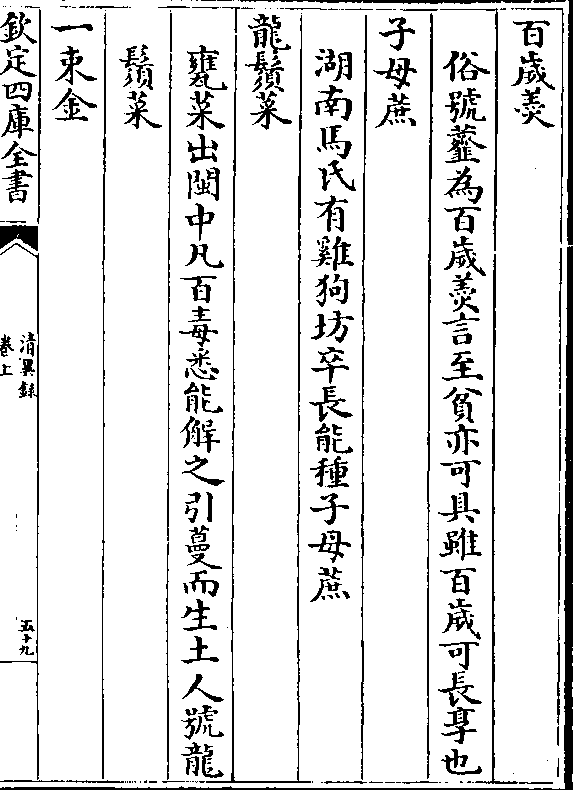 百歲羮
俗號虀為百歲羮言至貧亦可具雖百歲可長享也
子母蔗
湖南馬氏有雞狗坊卒長能種子母蔗
龍鬚菜
甕菜出閩中凡百毒悉能解之引蔓而生土人號龍
鬚菜
一束金
欽定四庫全書
清異錄
卷上
五十九